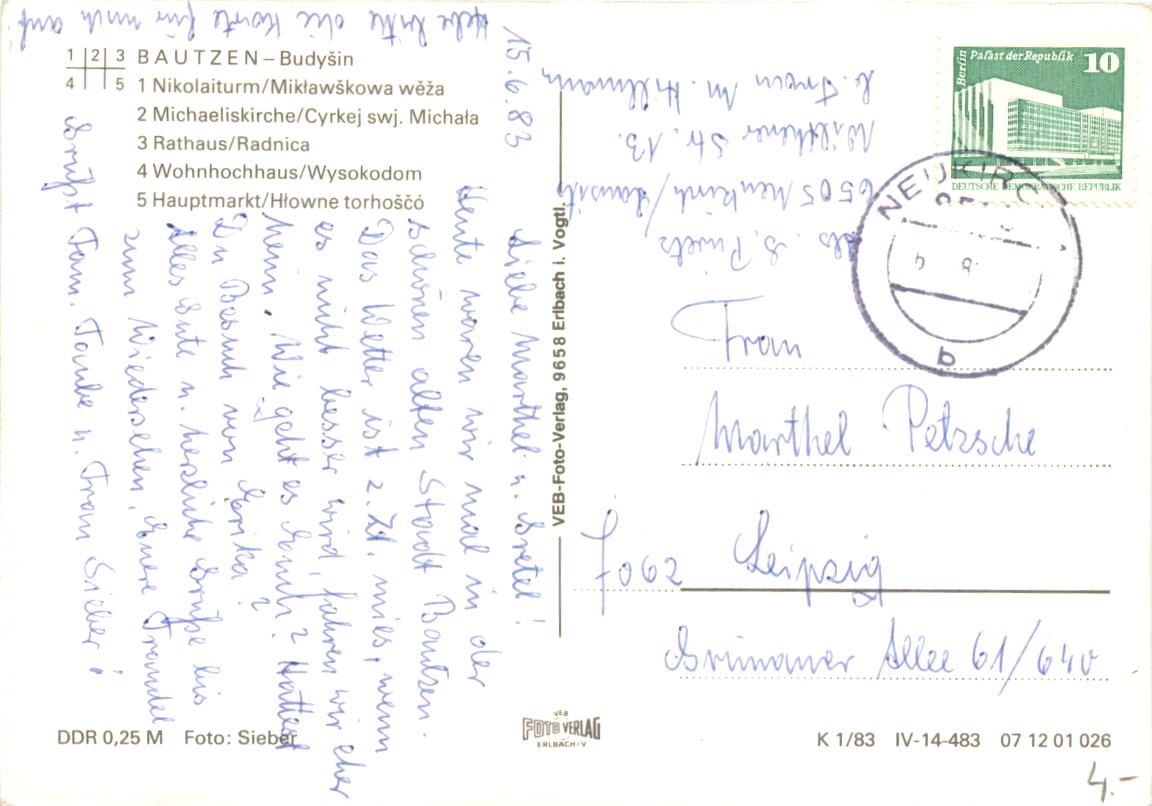 1 2 3
4 5
BAUTZEN – Budyšin
1 Nikolaiturm/Mikławškowa wěža
2 Michaeliskirche/Cyrkej swj. Michała
3 Rathaus/Radnica
4 Wohnhochhaus/Wysokodom
5 Hauptmarkt/Hłowne torhošćo
15.6.83
Liebe Marthel u. Gretel!
Heute waren wir mal in der
schönen alten Stadt Bautzen.
Das Wetter ist z. Zt. mies, wenn
es nicht besser wird, fahren wir eher
heim. Wie geht es Euch? Hattest
Du Besuch von Erika?
Alles Gute u. herzliche Grüße bis
zum Wiedersehen, Euere Traudel
Grüßt Fam. Taube u. Frau Sieber!
Hebe bitte die Karte für mich auf.
VEB-Foto-Verlag, 9658 Erlbach i. Vogtl.
Abs. G.
8505 Neukirch/Lausitz
Wilthener Str. 13.
b. Frau M. Hillmann
Berlin Palast der Republik 10
DEUTSCHE DEMOKRATISCHE REPUBLIK
NEUKIRC
b
Frau
Marthel Petzsche
7062 Leipzig
Grünauer Allee 61/640
DDR 0,25 M Foto: Sieber
VEB
FOTO VERLAG
ERLBACH/V
K 1/83 IV-14-483 07 12 01 026
4.-